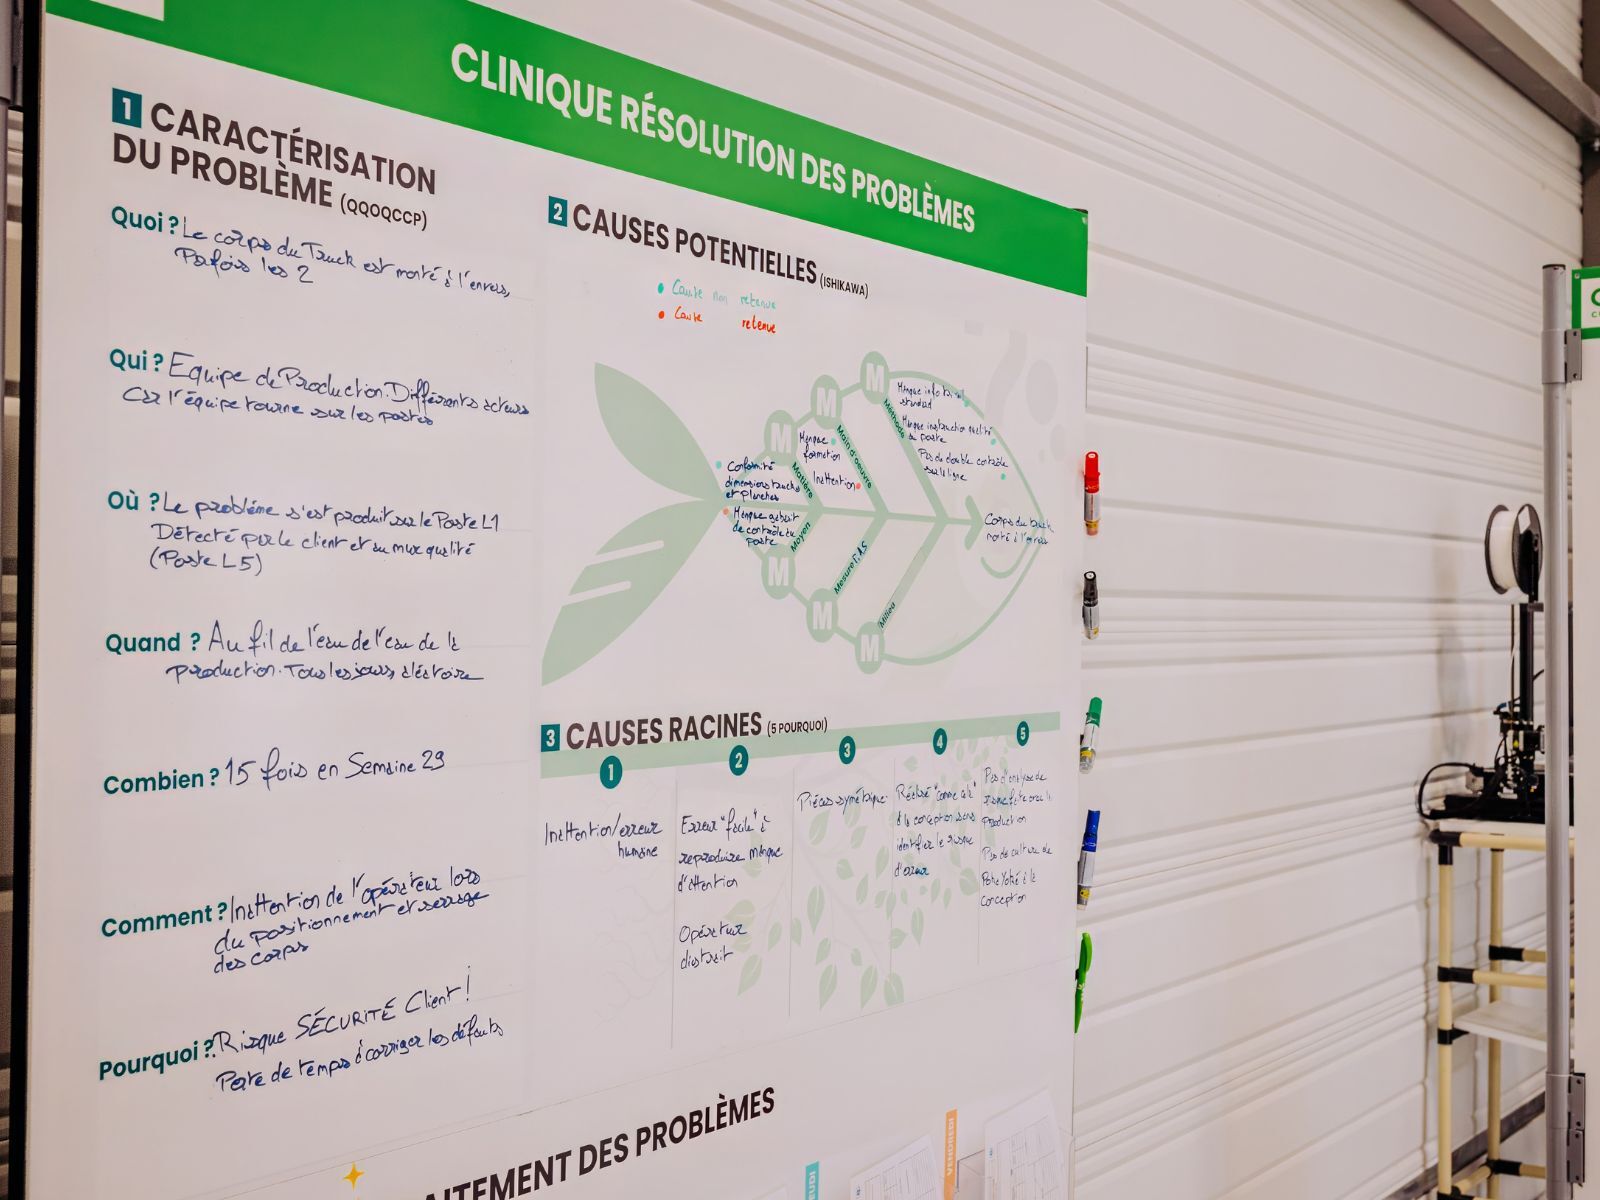 CLINIQUE RÉSOLUTION DES PROBLÈMES
1 CARACTÉRISATION
DU PROBLÈME (QQOQCCP)
Quoi ? Le corps du Truck est monté à l'envers,
Parfois les 2
Qui ? Equipe de Production. Différents acteurs
Car l'équipe tourne sur les postes
Où ? Le problème s'est produit sur le Poste L1
Détecté par le client et au mur qualité
(Poste L5)
Quand ? Au fil de l'eau de l'eau de la
production. Tous les jours, aléatoire
Combien ? 15 fois en Semaine 29
Comment ? Inattention de l'opérateur lors
du positionnement et serrage
des corps
Pourquoi ? Risque SÉCURITÉ Client !
Perte de temps à corriger les défauts
2 CAUSES POTENTIELLES (ISHIKAWA)
Cause non retenue
Cause retenue
M
M
M
Matière
Main d'oeuvre
Méthode
Conformité
dimensions trucks
et planches
Manque
formation
Inattention
Manque info
standard
Manque instruction qualité
au poste
Pas de double contrôle
sur ligne
Manque gabarit
de contrôle au
poste
Corps du truck
monté à l'envers
Moyen
Mesure
Milieu
M
M
M
3 CAUSES RACINES (5 POURQUOI)
1
2
3
4
5
Inattention/erreur
humaine
Erreur "facile" à
reproduire manque
d'attention
Opérateur
distrait
Pièces symétrique
Réalisé "comme cela"
à la conception sans
identifier le risque
d'erreur
Pas d'analyse de
risque faite avec la
production
Pas de culture de
Poka Yoké à la
conception
AITEMENT DES PROBLÈMES
EUDI
VENDREDI